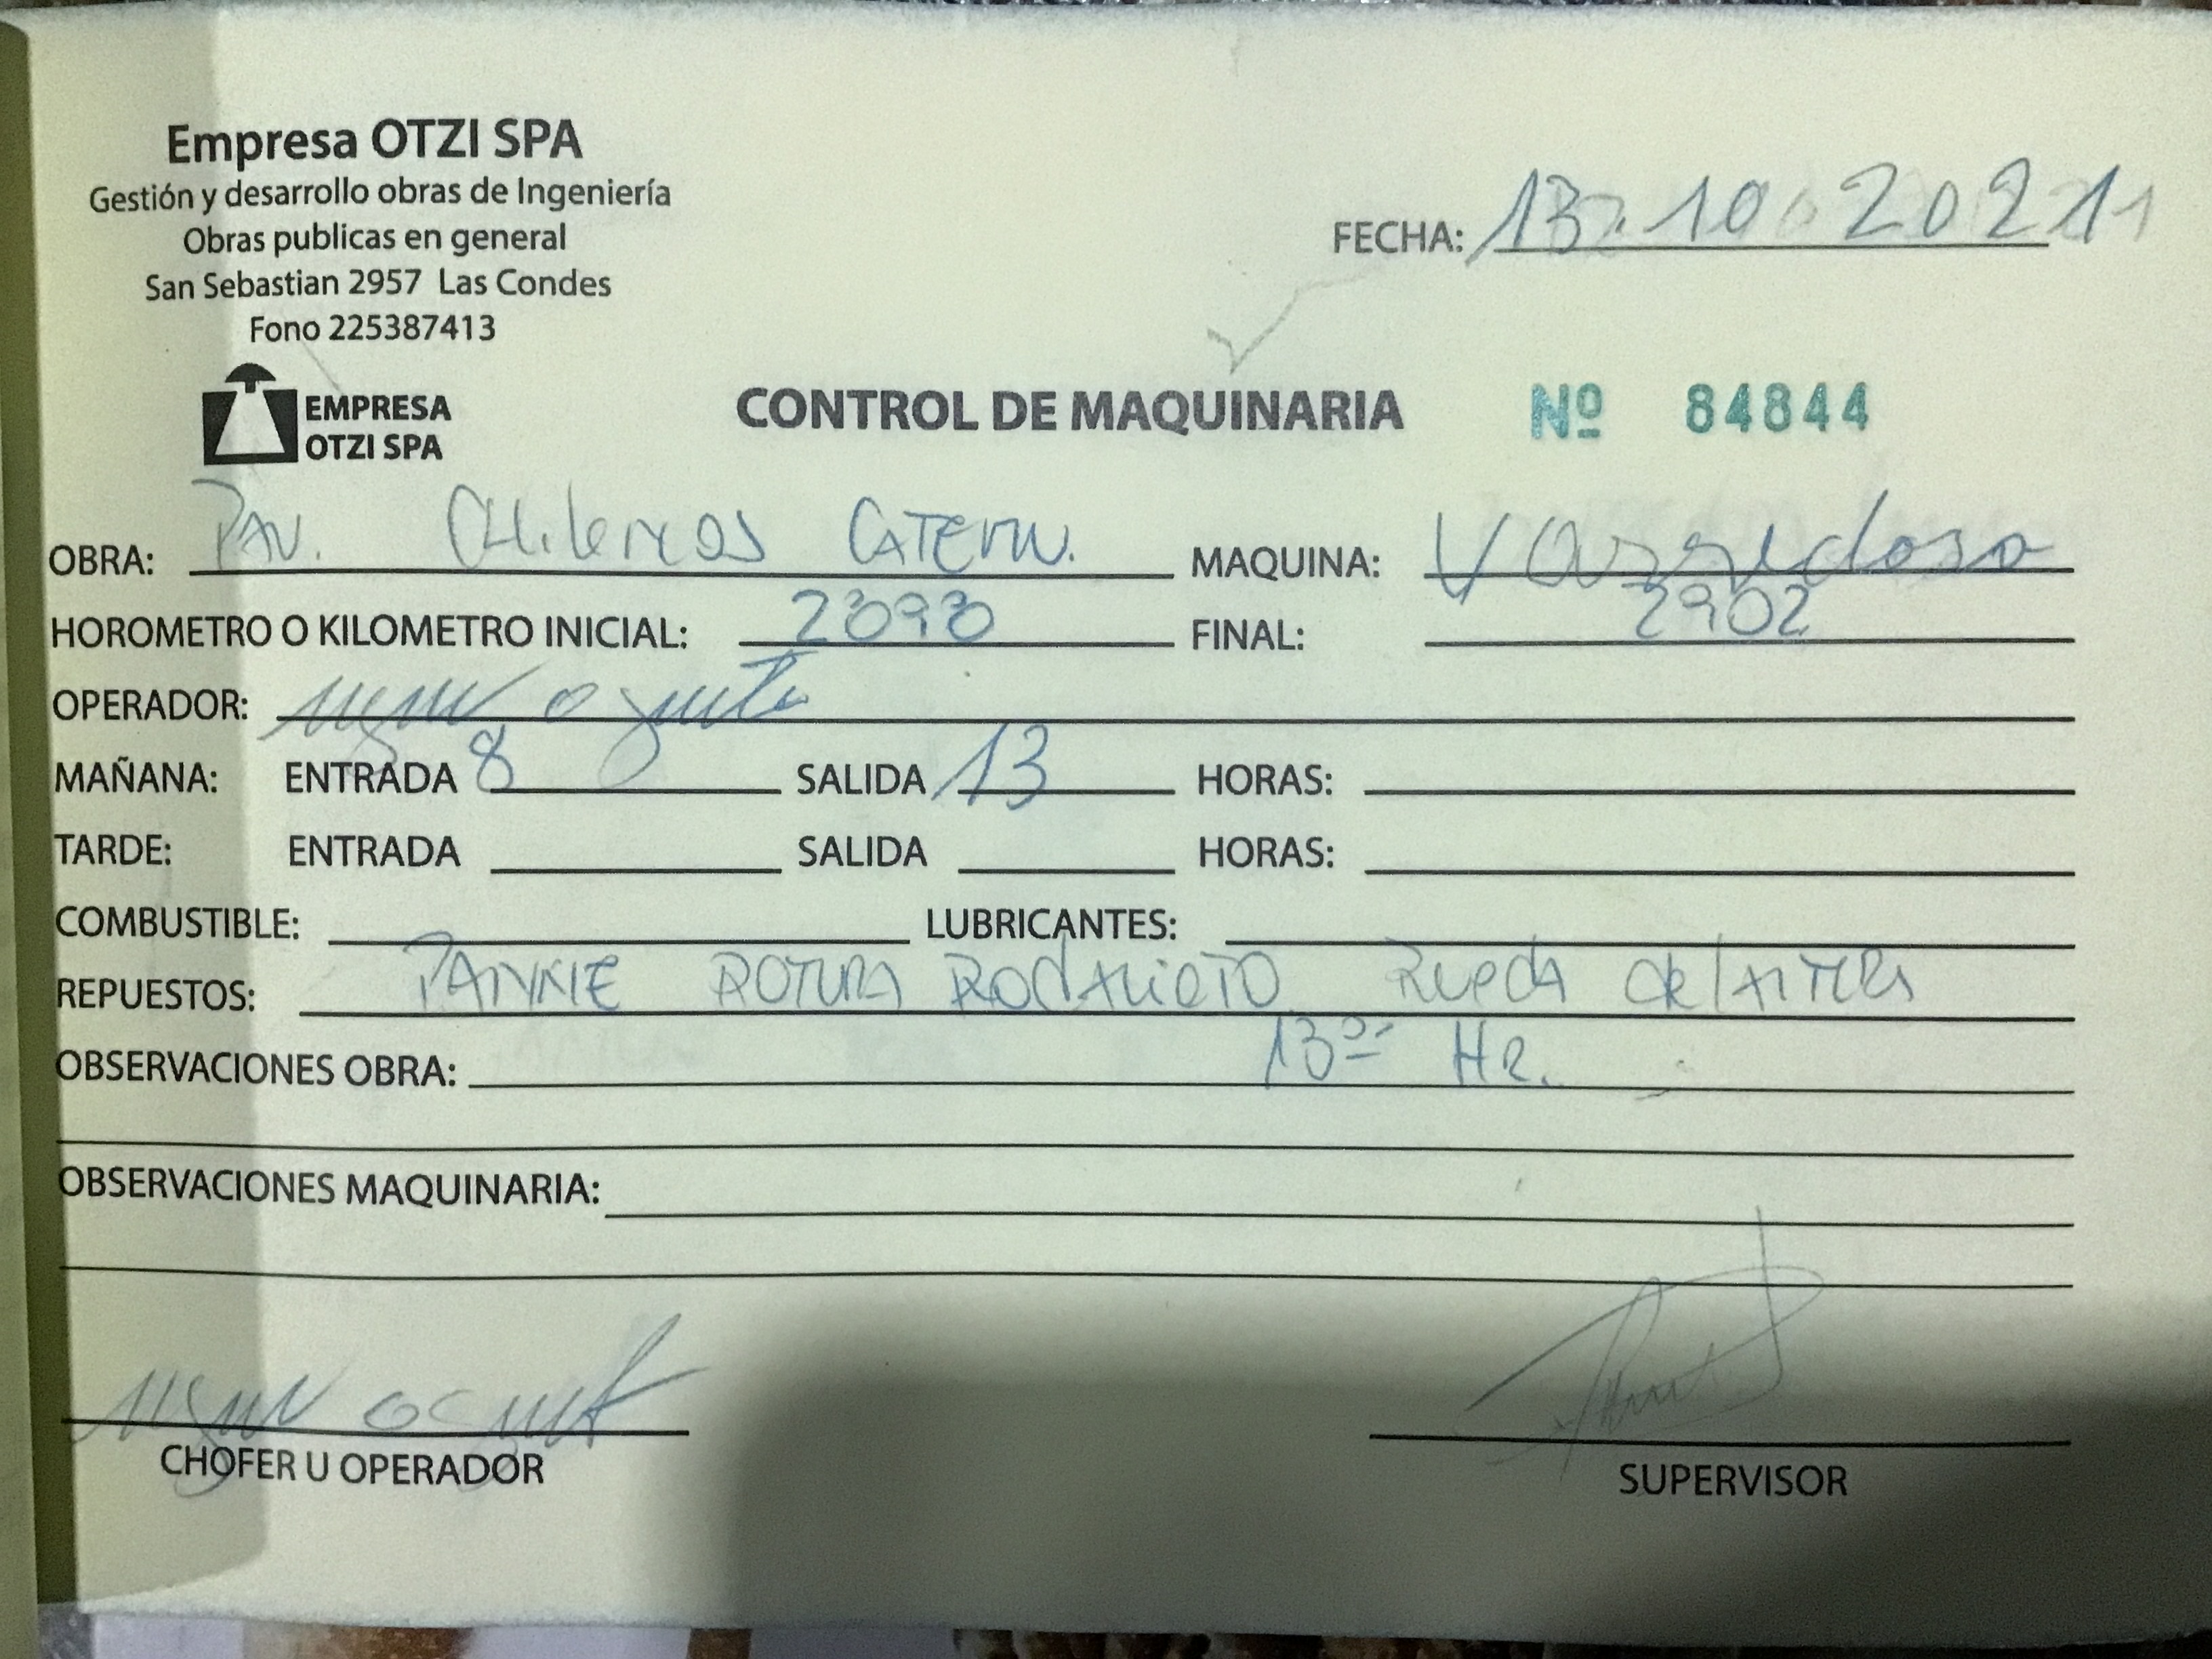 Empresa OTZI SPA
Gestión y desarrollo obras de Ingeniería
Obras publicas en general
San Sebastian 2957 Las Condes
Fono 225387413
FECHA: 13.10 2021
EMPRESA
OTZI SPA
CONTROL DE MAQUINARIA Nº 84844
OBRA: PAV. CHilenos CATEMU. MAQUINA: Varredora
HOROMETRO O KILOMETRO INICIAL: FINAL: 2902
OPERADOR:
MAÑANA: ENTRADA 8 SALIDA 13 HORAS:
TARDE: ENTRADA SALIDA HORAS:
COMBUSTIBLE: LUBRICANTES:
REPUESTOS: PANNE ROTURA RODAMIETO RUEDA delANTERA
OBSERVACIONES OBRA: 13 HR.
OBSERVACIONES MAQUINARIA:
CHOFER U OPERADOR
SUPERVISOR